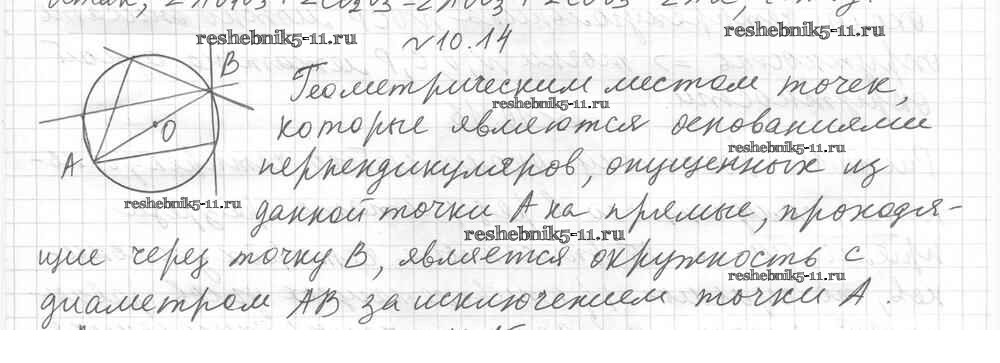 reshebnik5-11.ru
reshebnik5-11.ru
№10.14
B
Геометрическим местом точек,
reshebnik5-11.ru
которые являются основаниями
O
reshebnik5-11.ru
A
перпендикуляров, опущенных из
reshebnik5-11.ru
данной точки A на прямые, проходя-
reshebnik5-11.ru
щие через точку B, является окружность с
reshebnik5-11.ru
диаметром AB за исключением точки A.